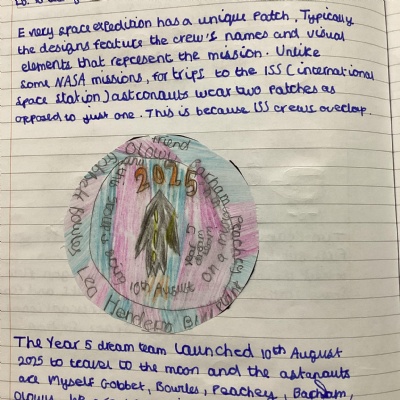 Every space expedition has a unique patch, Typically
the designs feature the crew's names and visual
elements that represent the mission. Unlike
some NASA missions, for trips to the ISS (international
space station) astronauts wear two patches as
opposed to just one. This is because ISS crews overlap.
friend
Olowu
Barham
Peachey
2025
Year
dream
on a
10th August
Bowles
Leo
Henderson
The Year 5 dream team launched 10th August
2025 to travel to the moon and the astronauts
are Myself Gobbet, Bowles, Peachey, Barham,
Olowu,